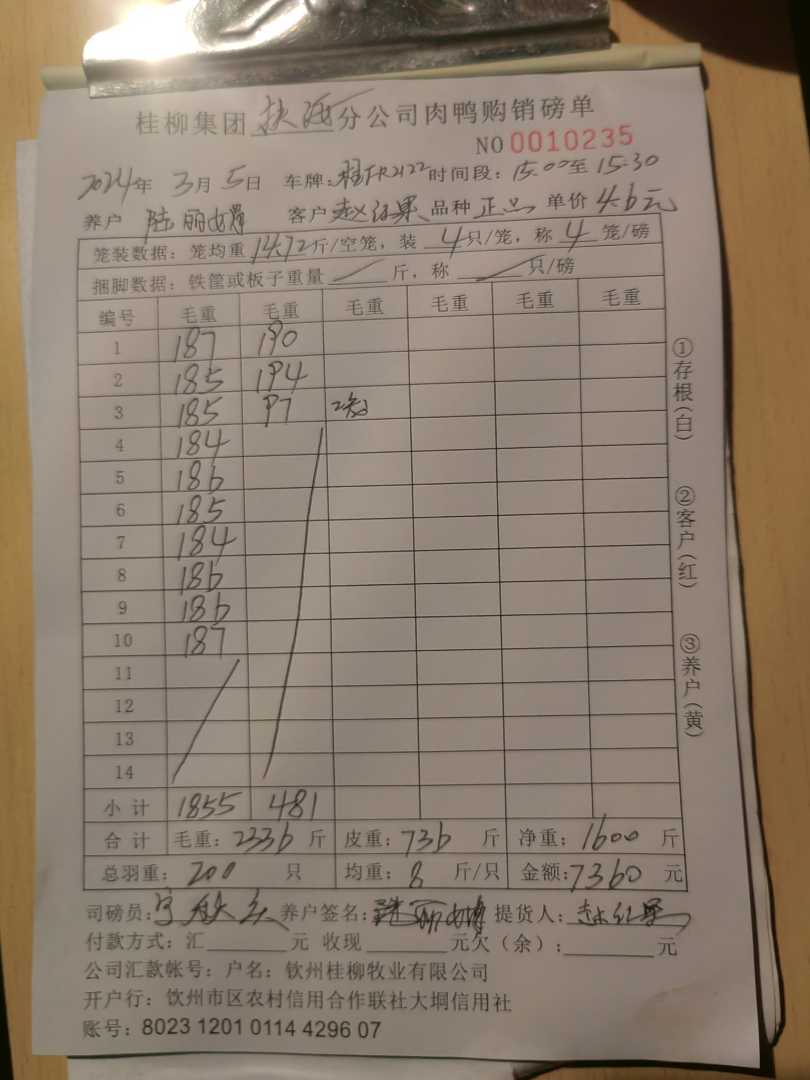 桂柳集团扶海分公司肉鸭购销磅单
NO 0010235
2024年 3月 5日 车牌:桂FR2122 时间段:15:00至15:30
养户 陆丽 客户 赵红果 品种 正品 单价 4.6元
笼装数据:笼均重14.72斤/空笼,装 4只/笼,称 4 笼/磅
捆脚数据:铁筐或板子重量 斤,称 只/磅
编号 毛重 毛重 毛重 毛重 毛重 毛重
1 187 190
2 185 194
3 185 97 2笼
4 184
5 186
6 185
7 184
8 186
9 186
10 187
11
12
13
14
小计 1855 481
合计 毛重:2336 斤 皮重:736 斤 净重:1600 斤
总羽重:200 只 均重:8 斤/只 金额:7360 元
司磅员: 养户签名: 提货人:赵红果
付款方式:汇 元 收现 元欠(余): 元
公司汇款帐号:户名:钦州桂柳牧业有限公司
开户行:钦州市区农村信用合作联社大垌信用社
账号:8023 1201 0114 4296 07
①存根(白)
②客户(红)
③养户(黄)